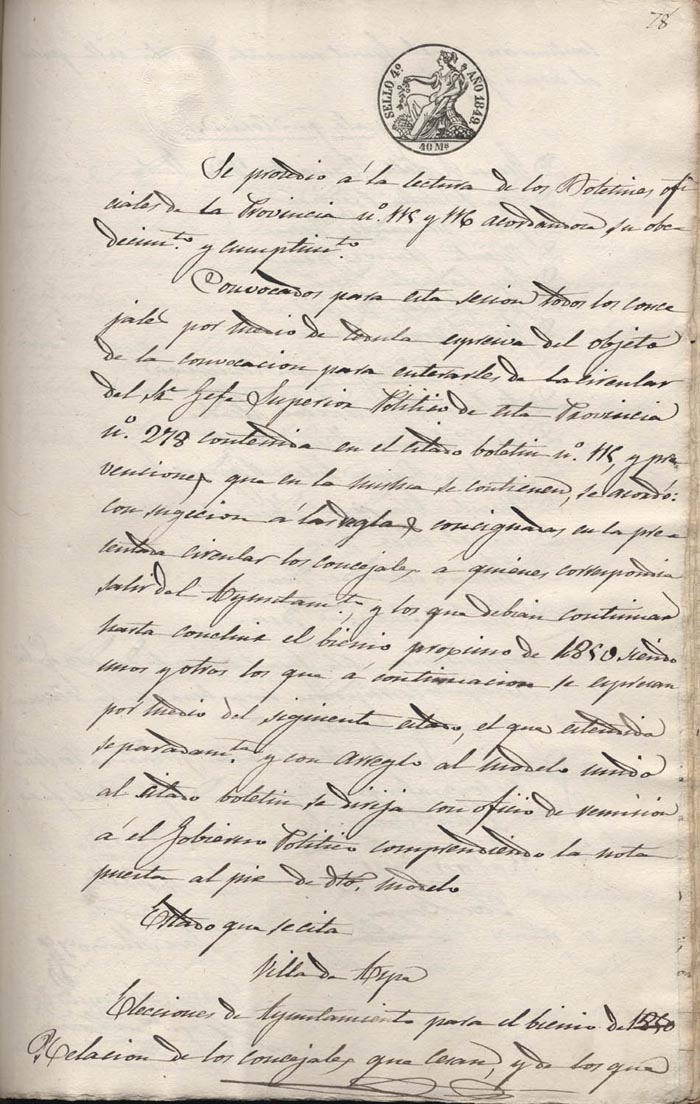 78
SELLO 4º AÑO 1849.
40 Ms
Se prosedio á la lectura de los Boletines ofi
ciales de la Provincia nº. 115 y 116 acordandose su obe-
decimto. y cumplimto.
Convocados para esta sesion todos los conce
jales por medio de cedula espresiva del objeto
de la convocacion para enterarles de la circular
del Sr. Gefe Superior Politico de esta Provincia
nº. 278 contenida en el citado boletin nº. 115, y pre
venciones que en la misma se contienen, se acordó:
con sugecion á las reglas concignadas en la pre-
centada circular los concejales á quiénes correspondia
salir del Ayuntamto., y los que debian continuar
hasta concluir el bienio procsimo de 1850 siendo
unos y otros los que á continuacion se espresan
por medio del siguiente estado, el que estendido
separadamte. y con arreglo al modelo unido
al citado boletin se dirija con oficio de remision
á el Gobierno Politico comprendiendo la nota
puesta al pie de dho. modelo
Estado que se cita
Villa de Aspe
Elecciones de Ayuntamiento para el bienio de 1850
Relacion de los concejales que cesan, y de los que